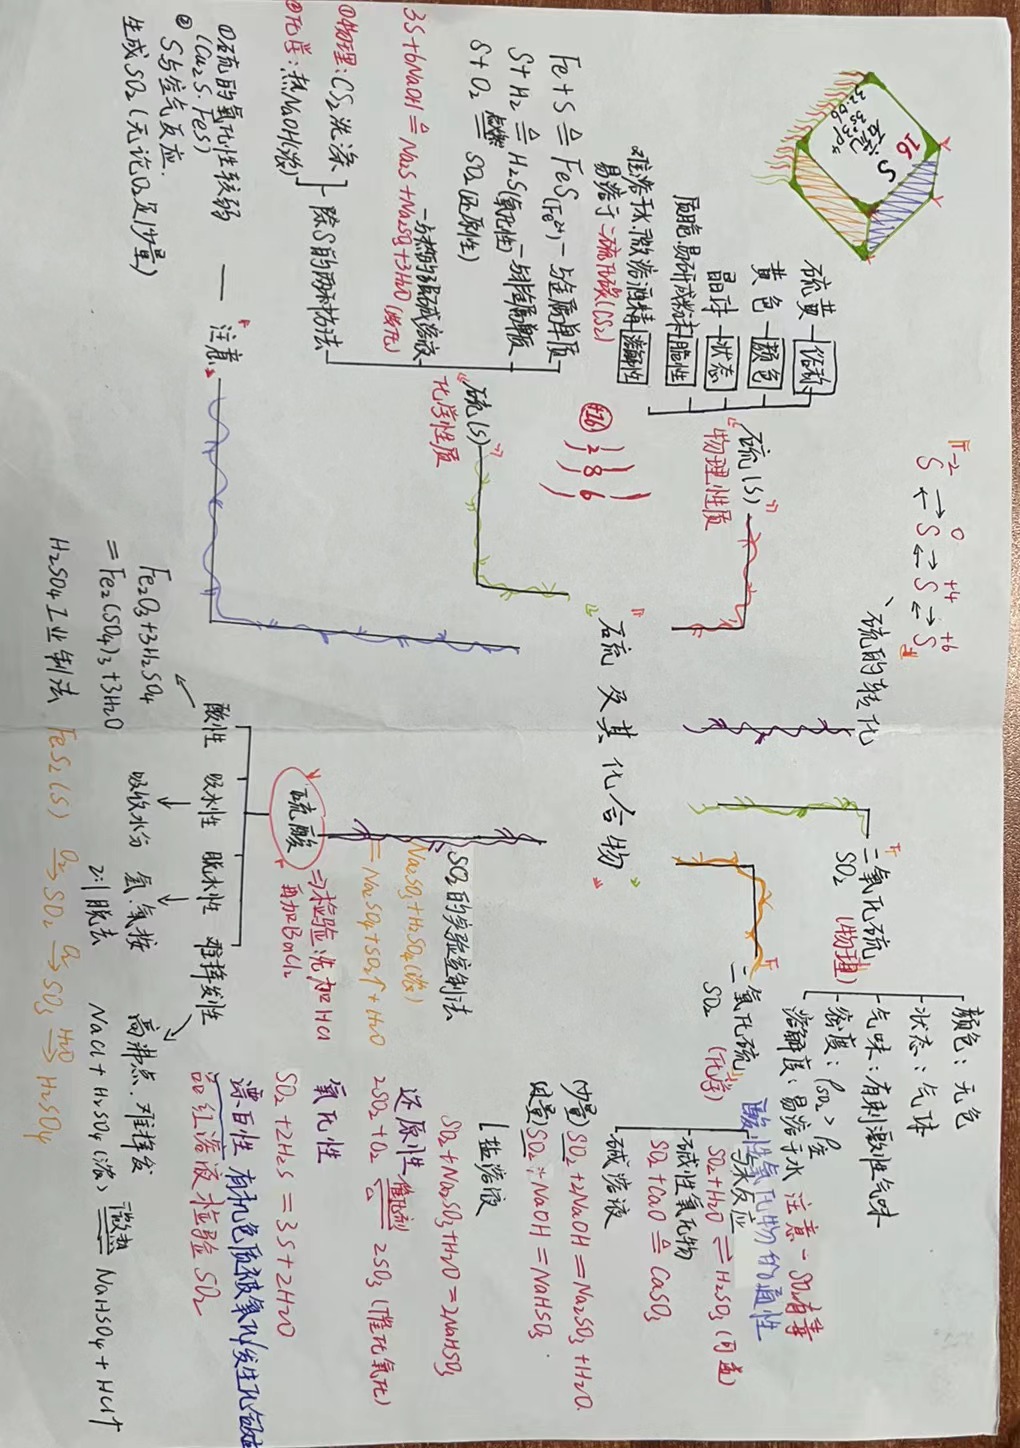 16 S
硫
3s²3p⁴
32.06
-2 0 +4 +6
S ⇌ S ⇌ S ⇌ S
硫的转化
硫及其化合物
+16 2 8 6
硫(S)
物理性质
硫黄 俗称
黄色 颜色
晶体 状态
质脆.易研成粉末 脆性
难溶于水.微溶酒精 溶解性
易溶于二硫化碳(CS2)
硫(S)
化学性质
Fe+S ≜ FeS(Fe²⁺) 与金属单质
S+H2 ≜ H2S(氧化性) 与非金属单质
S+O2 点燃 SO2(还原性)
与热的强碱溶液
3S+6NaOH ≜ 2Na2S+Na2SO3+3H2O
除S的两种方法
①物理:CS2洗涤
②化学:热NaOH(浓)
注意
①硫的氧化性较弱
(Cu2S.FeS)
②S与空气反应.
生成SO2(无论O2足/少量)
二氧化硫
SO2 (物理)
颜色:无色
状态:气体
气味:有刺激性气味
密度:ρSO2>ρ空
溶解度:易溶于水 注意-SO2有毒
二氧化硫
SO2 (化学)
酸性氧化物的通性
与水反应
SO2+H2O ⇌ H2SO3(可逆)
碱性氧化物
SO2+CaO ≜ CaSO3
碱溶液
(少量)SO2+2NaOH=Na2SO3+H2O.
(过量)SO2+NaOH=NaHSO3
盐溶液
SO2+Na2SO3+H2O=2NaHSO3
还原性
2SO2+O2 催化剂 ⇌ △ 2SO3(催化氧化)
氧化性
SO2+2H2S=3S+2H2O
漂白性 有机色质被氧化/发生化合
品红溶液检验SO2
SO2的实验室制法
Na2SO3+H2SO4(浓)
=Na2SO4+SO2↑+H2O
硫酸 ⇒检验:先加HCl
再加BaCl2
酸性 吸水性 脱水性 难挥发性
Fe2O3+3H2SO4
=Fe2(SO4)3+3H2O
吸收水分
氢.氧按
2:1脱去
高沸点.难挥发
NaCl+H2SO4(浓) 微热 NaHSO4+HCl↑
H2SO4工业制法 FeS2(S) O2→ SO2 O2→ SO3 H2O→ H2SO4